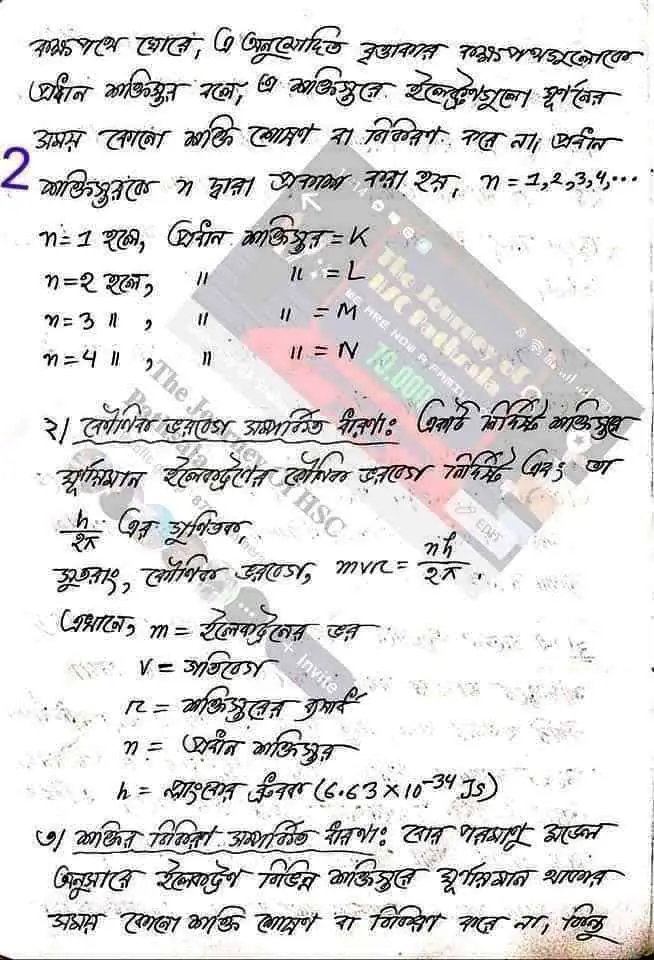 কক্ষপথে ঘোরে, এ অনুমোদিত বৃত্তাকার কক্ষপথগুলোকে
প্রধান শক্তিস্তর বলে, এ শক্তিস্তরে ইলেক্ট্রণগুলো ঘূর্ণনের
সময় কোনো শক্তি শোষণ বা বিকিরণ করে না, প্রধান
2
শক্তিস্তরকে n দ্বারা প্রকাশ করা হয়, n = 1,2,3,4,...
n=1 হলে, প্রধান শক্তিস্তর = K
n=2 হলে, " " = L
n=3 " , " " = M
n=4 " , " " = N
The Journey of HSC Pathshala
WE ARE NOW A FAMILY
70,000
The Journey of HSC
EDIT
+ Invite
২/ কৌণিক ভরবেগ সম্পর্কিত ধারণাঃ একটি নির্দিষ্ট শক্তিস্তরে
ঘূর্ণায়মান ইলেকট্রণের কৌণিক ভরবেগ নির্দিষ্ট এবং তা
h/2π এর গুণিতক,
সুতরাং, কৌণিক ভরবেগ, mvr = nh/2π .
এখানে, m = ইলেকট্রনের ভর
v = গতিবেগ
r = শক্তিস্তরের ব্যাসার্ধ
n = প্রধান শক্তিস্তর
h = প্লাংকের ধ্রুবক (6.63 × 10⁻³⁴ Js)
৩/ শক্তির বিকিরণ সম্পর্কিত ধারণাঃ বোর পরমাণু মডেল
অনুসারে ইলেকট্রণ বিভিন্ন শক্তিস্তরে ঘূর্ণায়মান থাকার
সময় কোনো শক্তি শোষণ বা বিকিরণ করে না, কিন্তু